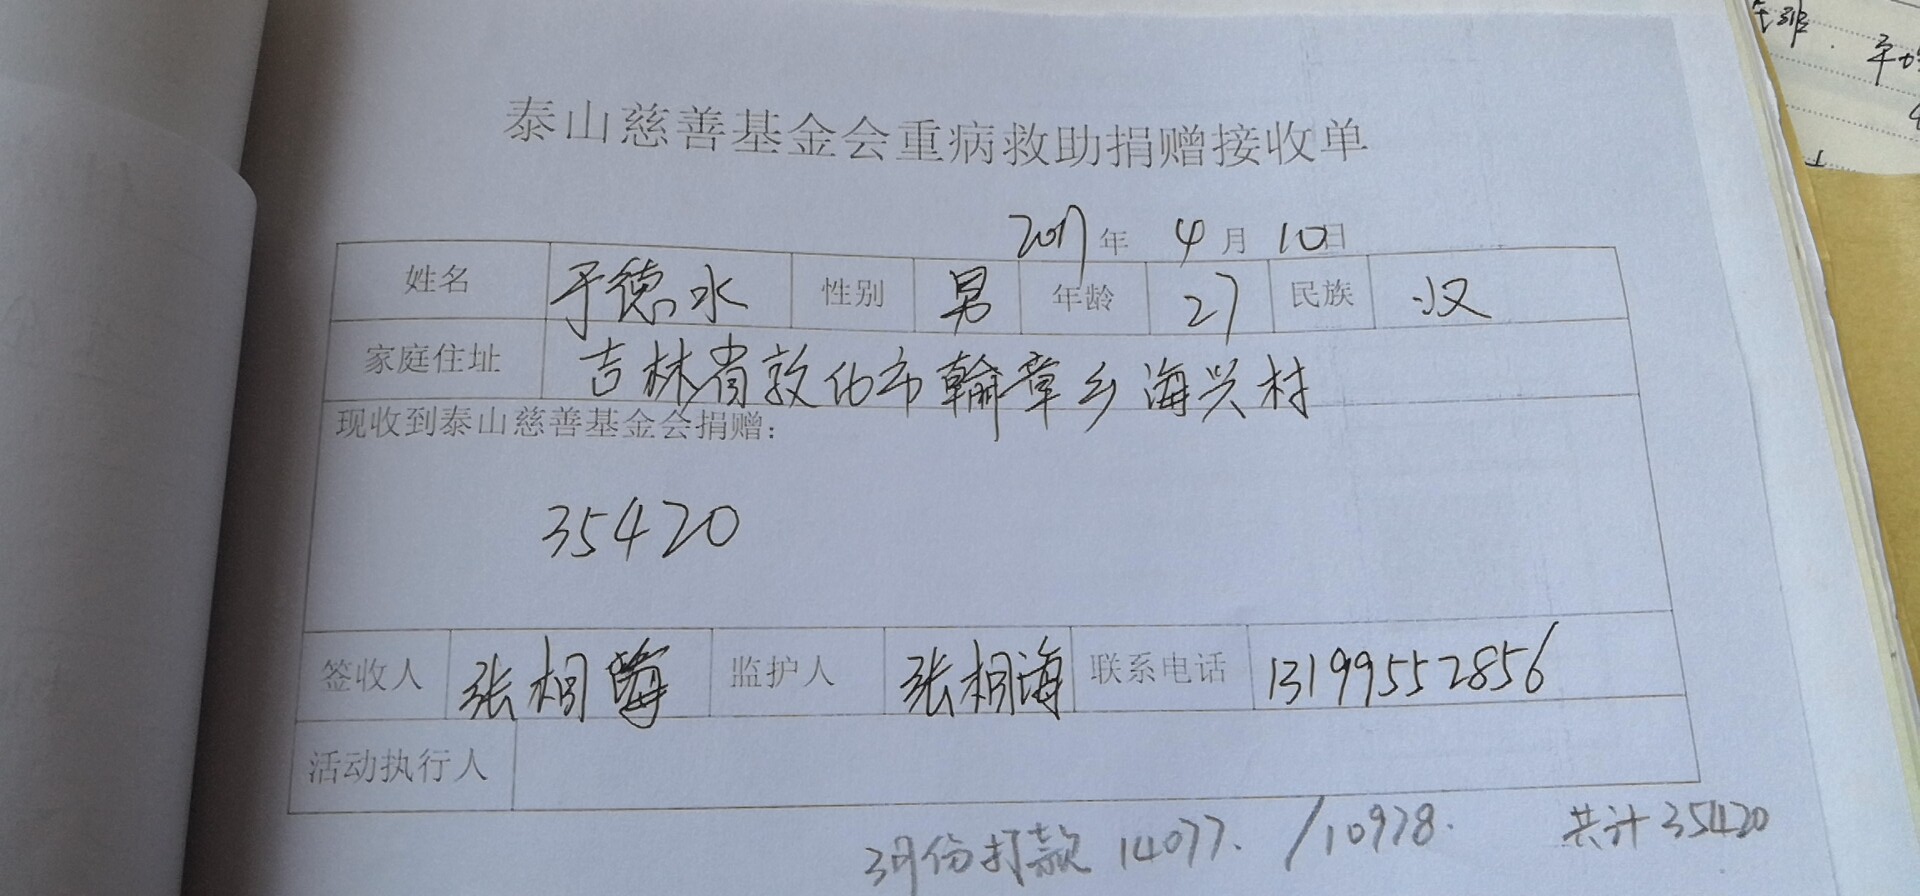 泰山慈善基金会重病救助捐赠接收单
2017年 4月 10日
姓名 于德水 性别 男 年龄 27 民族 汉
家庭住址 吉林省敦化市翰章乡海兴村
现收到泰山慈善基金会捐赠：
35420
签收人 张桐海 监护人 张桐海 联系电话 13199552856
活动执行人
3月份打款 14077. /10978. 共计35420